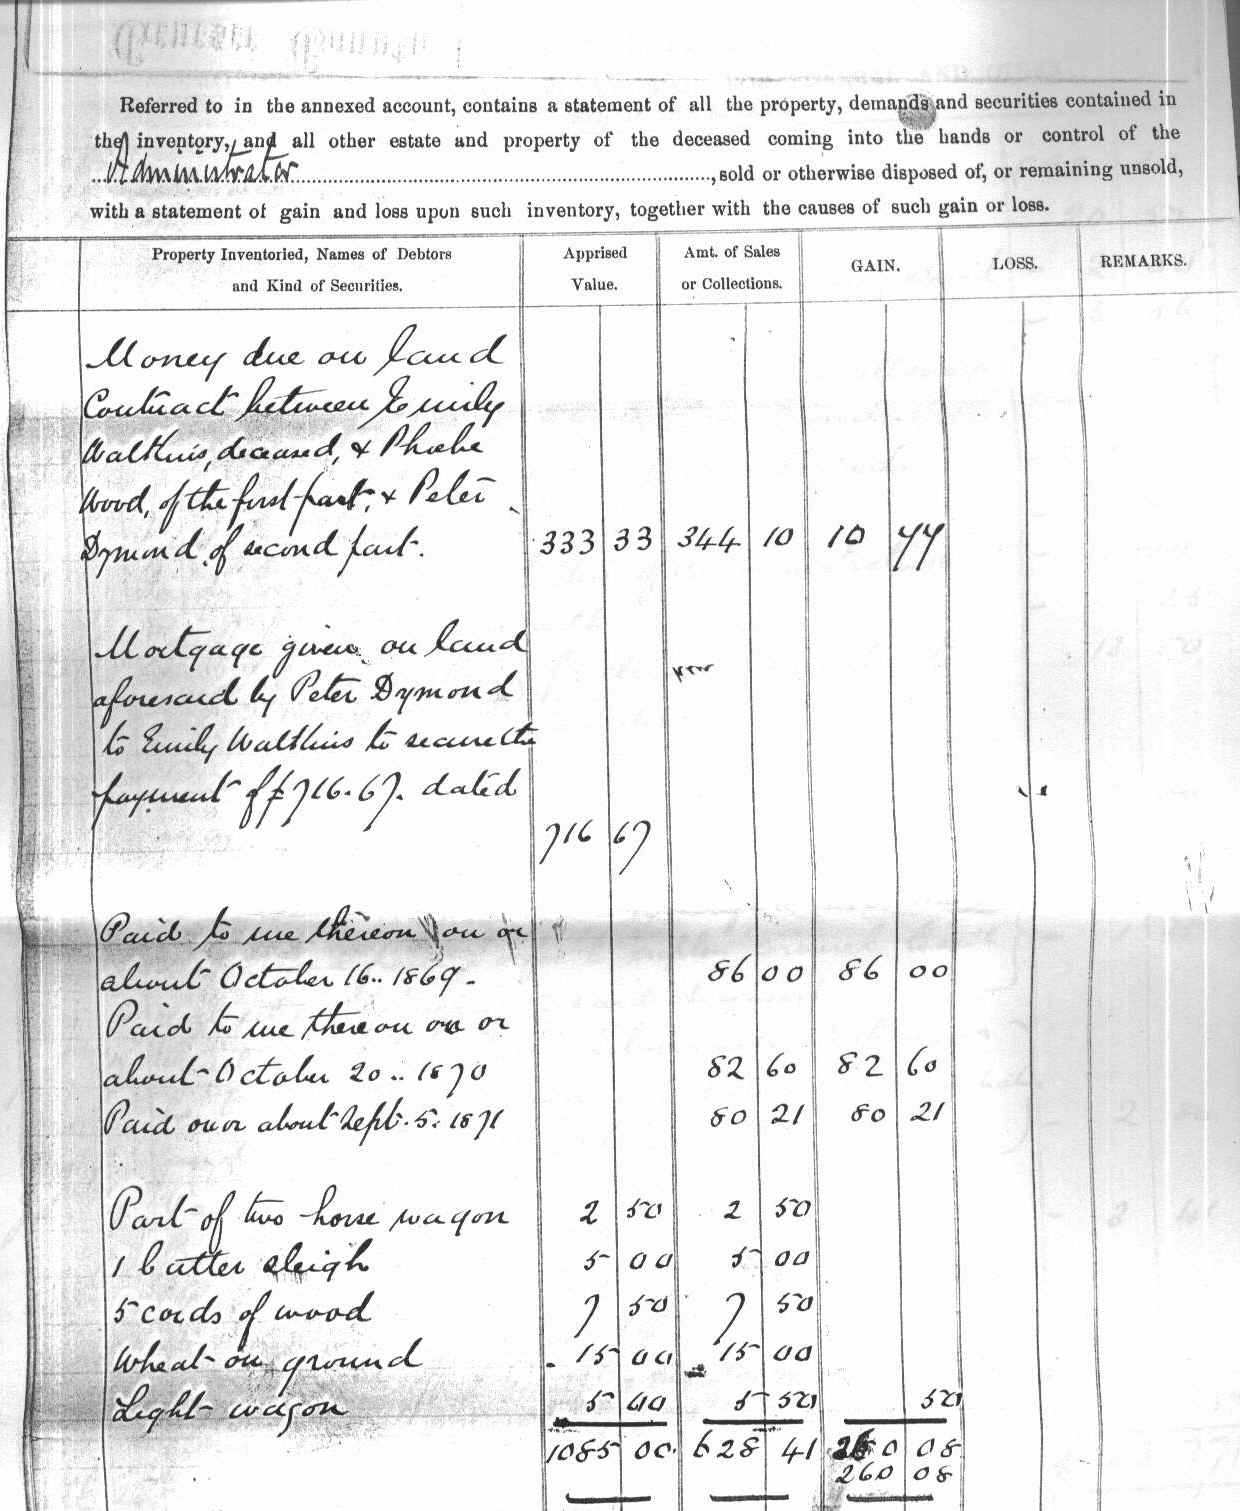 Referred to in the annexed account, contains a statement of all the property, demands and securities contained in
the inventory, and all other estate and property of the deceased coming into the hands or control of the
Administrator, sold or otherwise disposed of, or remaining unsold,
with a statement of gain and loss upon such inventory, together with the causes of such gain or loss.
Property Inventoried, Names of Debtors and Kind of Securities. Apprised Value. Amt. of Sales or Collections. GAIN. LOSS. REMARKS.
Money due on land
Contract between Emily
Walthus, deceased, & Phoebe
Wood, of the first part, & Peter
Dymond of second part. 333 33 344 10 10 77
Mortgage given on land
aforesaid by Peter Dymond
to Emily Walthus to secure the
payment of $716.67. dated
716 67
Paid to me thereon on or
about October 16.. 1869. 86 00 86 00
Paid to me thereon on or
about October 20.. 1870 82 60 82 60
Paid on or about Sept. 5. 1871 80 21 80 21
Part of two horse wagon 2 50 2 50
1 Cutter sleigh 5 00 5 00
5 cords of wood 7 50 7 50
Wheat on ground 15 00 15 00
Light wagon 5 00 5 50 50
1085 00 628 41 260 08
260 08